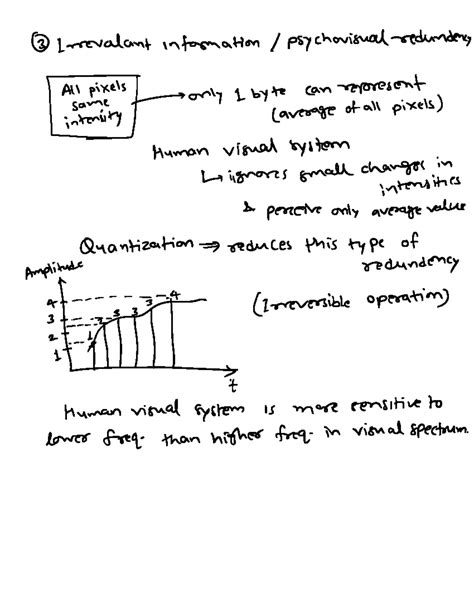 ③ Irrevalant information / psychovisual redundency
All pixels
same
intensity
→ only 1 byte can represent
(average of all pixels)
Human visual system
↳ ignores small changes in
intensities
& perceive only average value
Quantization ⇒ reduces this type of
redundency
(Irreversible operation)
Amplitude
4
3
2
1
1 2 3 3 3 4
t
Human visual system is more sensitive to
lower freq. than higher freq. in visual spectrum.